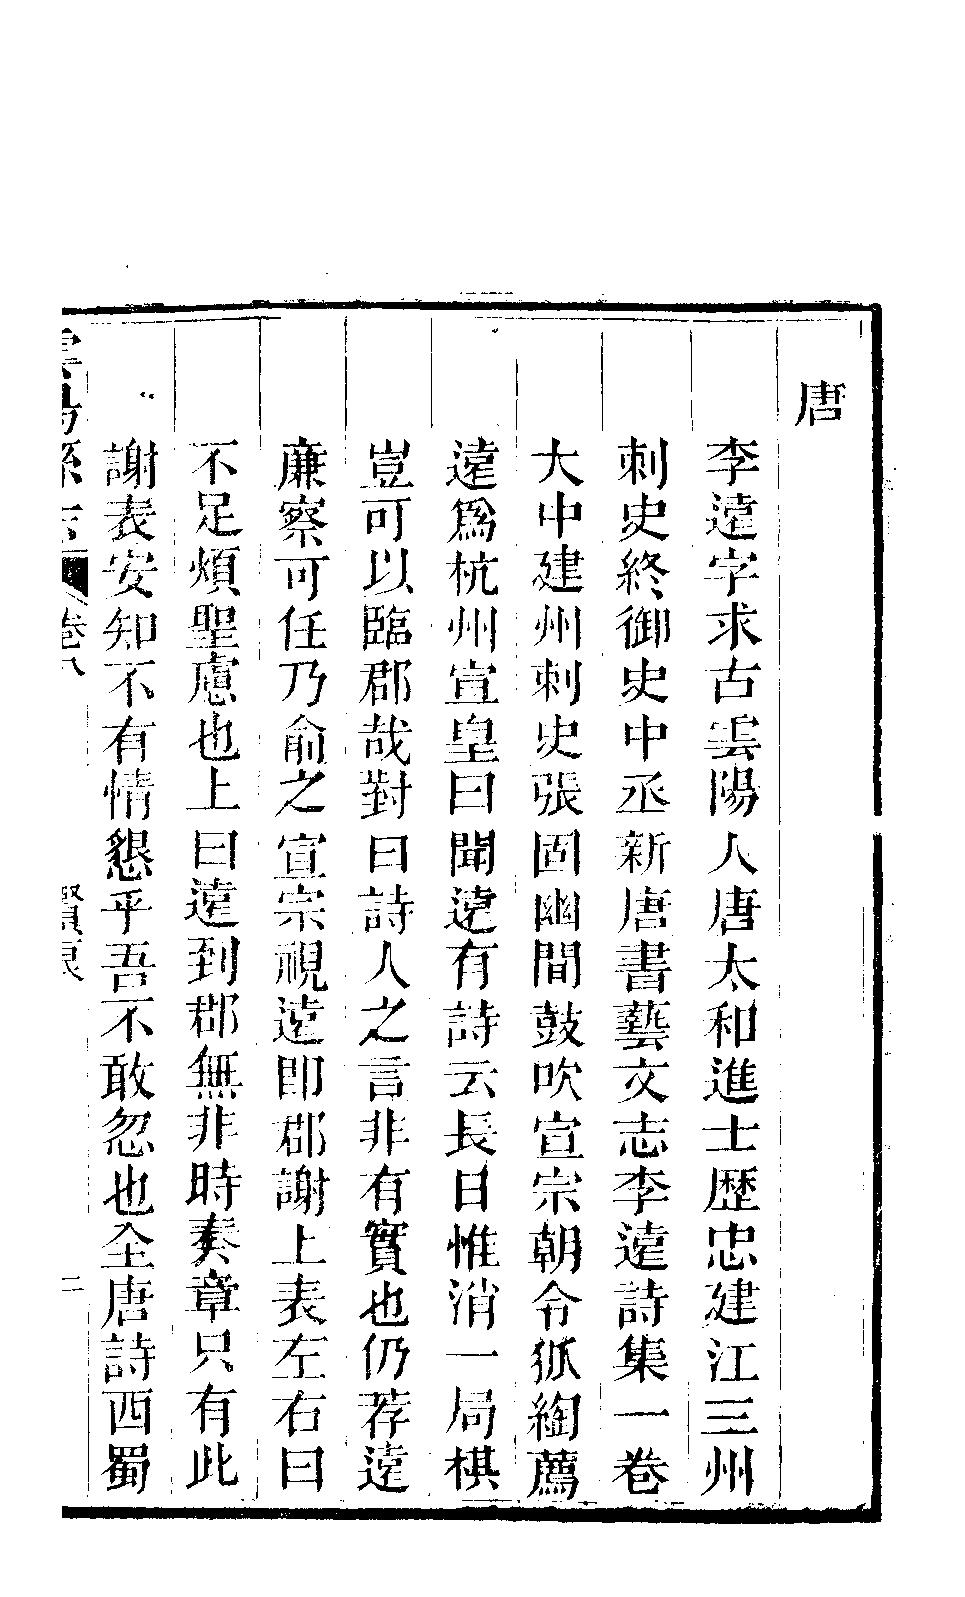 唐
李遠字求古雲陽人唐太和進士歷忠建江三州
刺史終御史中丞新唐書藝文志李遠詩集一卷
大中建州刺史張固幽閒鼓吹宣宗朝令狐綯薦
遠爲杭州宣皇曰聞遠有詩云長日惟消一局棋
豈可以臨郡哉對曰詩人之言非有實也仍荐遠
廉察可任乃俞之宣宗視遠即郡謝上表左右曰
不足煩聖慮也上曰遠到郡無非時奏章只有此
謝表安知不有情懇乎吾不敢忽也全唐詩西蜀
雲陽縣志 卷八 二